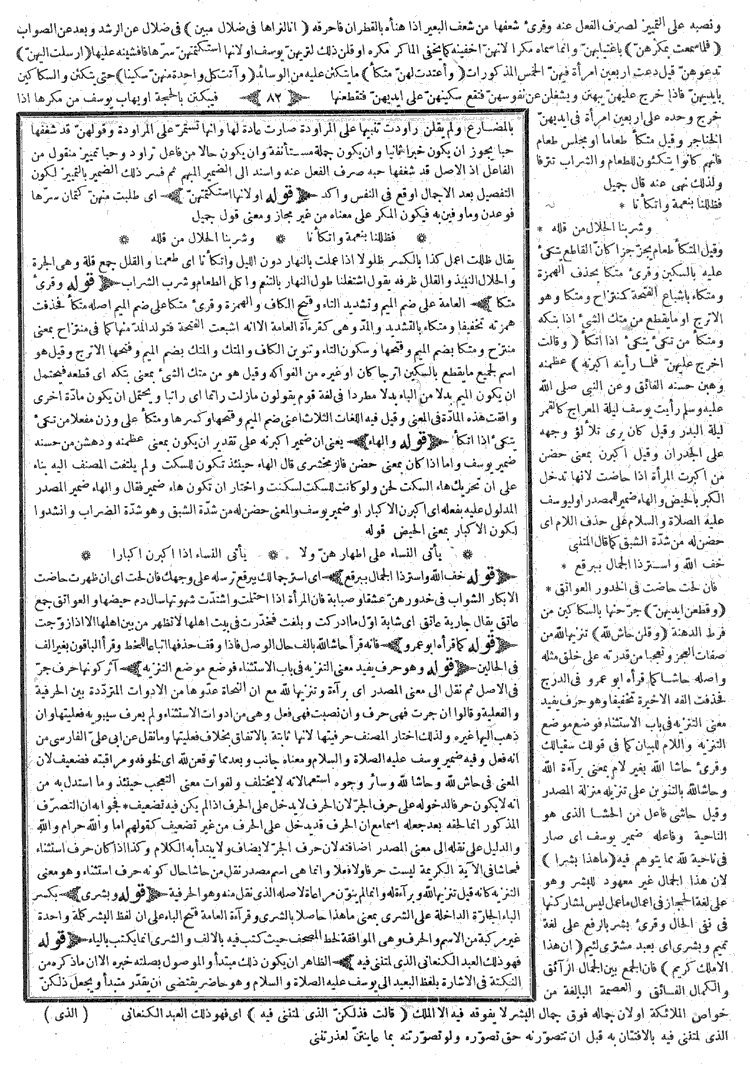 ونصبه على التمييز لصرف الفعل عنه وقرئ شعفها من شعف البعير اذا هنأه بالقطران فاحرقه (انا لنراها فى ضلال مبين) فى ضلال عن الرشد وبعد عن الصواب
(فلما سمعت بمكرهن) باغتيابهن وانما سماه مكرا لانهن اخفينه كما يخفى الماكر مكره او قلن ذلك لتريهن يوسف اولانها استكتمتهن سرها فافشينه عليها (ارسلت اليهن)
تدعوهن قيل دعت اربعين امرأة فيهن الخمس المذكورات (وأعتدت لهن متكأ) ما يتكئن عليه من الوسائد (وآتت كل واحدة منهن سكينا) حتى يتكئن والسكاكين
بايديهن فاذا خرج عليهن يبهتن ويشغلن عن نفوسهن فتقع سكينهن على ايديهن فتقطعنها ﴿ ٨٢ ﴾ فيبكتن بالحجة اويهاب يوسف من مكرها اذا
خرج وحده على اربعين امرأة فى ايديهن
الخناجر وقيل متكأ طعاما او مجلس طعام
فانهم كانوا يتكئون للطعام والشراب تترفا
ولذلك نهى عنه قال جميل
فظللنا بنعمة واتكأ نا *
* وشربنا الحلال من قلله *
وقيل المتكأ طعام يحز حزا كأن القاطع يتكئ
عليه بالسكين وقرئ متكا بحذف الهمزة
ومتكاء باشباع الفتحة كمنتزاح ومتكا وهو
الاترج او ما يقطع من متك الشئ اذا بتكه
ومتكأ من تكئ يتكئ اذا اتكأ (وقالت
اخرج عليهن فلما رأينه اكبرنه) عظمنه
وهبن حسنه الفائق وعن النبى صلى الله
عليه وسلم رأيت يوسف ليلة المعراج كالقمر
ليلة البدر وقيل كان يرى تلألؤ وجهه
على الجدران وقيل اكبرن بمعنى حضن
من اكبرت المرأة اذا حاضت لانها تدخل
الكبر بالحيض والهاء ضمير للمصدر او ليوسف
عليه الصلاة والسلام على حذف اللام اى
حضن له من شدة الشبق كما قال المتنبى
خف الله واستر ذا الجمال ببرقع *
فان لحت حاضت فى الخدور العواتق *
(وقطعن ايديهن) جرحنها بالسكاكين من
فرط الدهشة (وقلن حاش لله) تنزيها لله من
صفات العجز وتعجبا من قدرته على خلق مثله
واصله حاشا كما قرأه ابو عمرو فى الدرج
فحذفت الفه الاخيرة تخفيفا وهو حرف يفيد
معنى التنزيه فى باب الاستثناء فوضع موضع
التنزيه واللام للبيان كما فى قولك سقيالك
وقرئ حاشا الله بغير لام بمعنى براءة الله
وحاشا لله بالتنوين على تنزيله منزلة المصدر
وقيل حاشى فاعل من الحشا الذى هو
الناحية وفاعله ضمير يوسف اى صار
فى ناحية لله مما يتوهم فيه (ماهذا بشرا)
لان هذا الجمال غير معهود للبشر وهو
على لغة الحجاز فى اعمال ما عمل ليس لمشاركتها
فى نفى الحال وقرئ بشر بالرفع على لغة
تميم وبشرى اى بعبد مشترى لئيم (ان هذا
الاملك كريم) فان الجمع بين الجمال الرآئق
والكمال الفائق والعصمة البالغة من
بالمضارع ولم يقلن راودت تنبيها على المراودة صارت عادة لها وانها تستمر على المراودة وقولهن قد شغفها
حبا يجوز ان يكون خبرا ثانيا وان يكون جملة مستأنفة وان يكون حالا من فاعل تراود وحبا تمييز منقول من
الفاعل اذ الاصل قد شغفها حبه صرف الفعل عنه واسند الى الضمير المبهم ثم فسر ذلك الضمير بالتمييز لكون
التفصيل بعد الاجمال اوقع فى النفس وآكد ﴿قوله اولانها استكتمتهن﴾ اى طلبت منهن كتمان سرها
فوعدن وما وفين به فيكون المكر على معناه من غير مجاز ومعنى قول جميل
* فظللنا بنعمة واتكأ نا * وشربنا الحلال من قلله *
يقال ظللت اعمل كذا بالكسر ظلولا اذا عملت بالنهار دون الليل واتكأ نا اى طعمنا والقلل جمع قلة وهى الجرة
والحلال النبيذ والقلل ظرفه يقول اشتغلنا طول النهار بالتنعم واكل الطعام وشرب الشراب ﴿قوله وقرئ
متكا﴾ العامة على ضم الميم وتشديد التاء وفتح الكاف والهمزة وقرئ متكا على ضم الميم اصله متكأ فحذفت
همزته تخفيفا ومتكاء بالتشديد والمد وهى كقرءآة العامة الا انه اشبعت الفتحة فتولد المد منها كما فى منتزاح بمعنى
منتزح ومتكا بضم الميم وفتحها وسكون التاء وتنوين الكاف والمتك والمتك بضم الميم وفتحها الاترج وقيل هو
اسم لجميع ما يقطع بالسكين اترجا كان او غيره من الفواكه وقيل هو من متك الشئ بمعنى بتكه اى قطعه فيحتمل
ان يكون الميم بدلا من الباء بدلا مطردا فى لغة قوم يقولون مازلت راتما اى راتبا ويحتمل ان يكون مادة اخرى
وافقت هذه المادة فى المعنى وقيل فيه اللغات الثلاث اعنى ضم الميم وفتحها وكسرها ومتكأ على وزن مفعلا من تكئ
يتكئ اذا اتكأ ﴿قوله والهاء﴾ يعنى ان ضمير اكبرنه على تقدير ان يكون بمعنى عظمنه ودهشن من حسنه
ضمير يوسف واما اذا كان بمعنى حضن فالزمخشرى قال الهاء حينئذ تكون للسكت ولم يلتفت المصنف اليه بناء
على ان تحريك هاء السكت لحن ولو كانت للسكت لسكنت واختار ان تكون هاء ضمير فقال والهاء ضمير المصدر
المدلول عليه بفعله اى اكبرن الاكبار او ضمير يوسف والمعنى حضن له من شدة الشبق وهو شدة الضراب وانشدوا
لكون الاكبار بمعنى الحيض قوله
* يأتى النساء على اطهارهن ولا * يأتى النساء اذا اكبرن اكبارا *
﴿قوله خف الله واستر ذا الجمال ببرقع﴾ اى استر جمالك ببرقع ترسله على وجهك فان لحت اى ان ظهرت حاضت
الابكار الشواب فى خدورهن عشقا وصبابة فان المرأة اذا احتملت واشتدت شهوتها سال دم حيضها والعواتق جمع
عاتق يقال جارية عاتق اى شابة اول ما ادركت وبلغت فخدرت فى بيت اهلها لا تظهر من بين اهلها الا اذا زوجت
﴿قوله كما قرأه ابو عمرو﴾ فانه قرأ حاشا لله بالف حال الوصل فاذا وقف حذفها اتباعا للخط وقرأ الباقون بغير الف
فى الحالين ﴿قوله وهو حرف يفيد معنى التنزيه فى باب الاستثناء فوضع موضع التنزيه﴾ آثر كونها حرف جر
فى الاصل ثم نقل الى معنى المصدر اى براءة وتنزيها لله مع ان النحاة عدوها من الادوات المترددة بين الحرفية
والفعلية وقالوا ان جرت فهى حرف وان نصبت فهى فعل وهى من ادوات الاستثناء ولم يعرف سيبويه بفعليتها وان
ذهب اليها غيره ولذلك اختار المصنف حرفيتها لانها ثابتة بالاتفاق بخلاف فعليتها وما نقل عن ابى على الفارسى من
انه فعل وفيه ضمير يوسف عليه الصلاة والسلام ومعناه جانب وبعد مما توقعن لله اى لخوفه ومراقبته فضعيف لان
المعنى فى حاش لله وحاشا لله وسائر وجوه استعمالاته لا يختلف ولفوات معنى التعجب حينئذ وما استدل به من
انه لا يكون حرفا لدخوله على حرف الجر لان الحرف لا يدخل على الحرف اذا لم يكن فيه تضعيف فجوابه ان التصرف
المذكور انما لحقه بعد جعله اسما مع ان الحرف قد يدخل على الحرف من غير تضعيف كقولهم اما والله حرام والله
والدليل على نقله الى معنى المصدر اضافته لان حرف الجر لا يضاف ولا يبتدأ به الكلام وكذا اذا كان حرف استثناء
فحاشا فى الآية الكريمة ليست حرفا ولا فعلا وانما هى اسم مصدر نقل من حاشا حال كونه حرف استثناء وهو معنى
التنزيه كانه قيل تنزيها لله وبراءة له وانما لم ينون مراعاة لاصله الذى نقل منه وهو الحرفية ﴿قوله وبشرى﴾ بكسر
الباء الجارة الداخلة على الشرى بمعنى ما هذا حاصلا بالشرى وقرءآة العامة بفتح الباء على ان لفظ البشر كلة واحدة
غير مركبة من الاسم والحرف وهى الموافقة لخط المصحف حيث كتب فيه بالالف والشرى انما يكتب بالياء ﴿قوله
فهو ذلك العبد الكنعانى الذى لمتننى فيه﴾ الظاهر ان يكون ذلك مبتدأ والموصول بصلته خبره الا ان ما ذكره من
النكتة فى الاشارة بلفظ البعيد الى يوسف عليه الصلاة والسلام وهو حاضر يقتضى ان يقدر مبتدأ ويجعل ذلكن
خواص الملائكة اولان جماله فوق جمال البشر لا يفوقه فيه الا الملك (قالت فذلكن الذى لمتننى فيه) اى فهو ذلك العبد الكنعانى (الذى)
الذى لمتننى فيه بالافتتان به قبل ان تتصورنه حق تصوره ولو تصورتنه بما عاينتن لعذرتننى